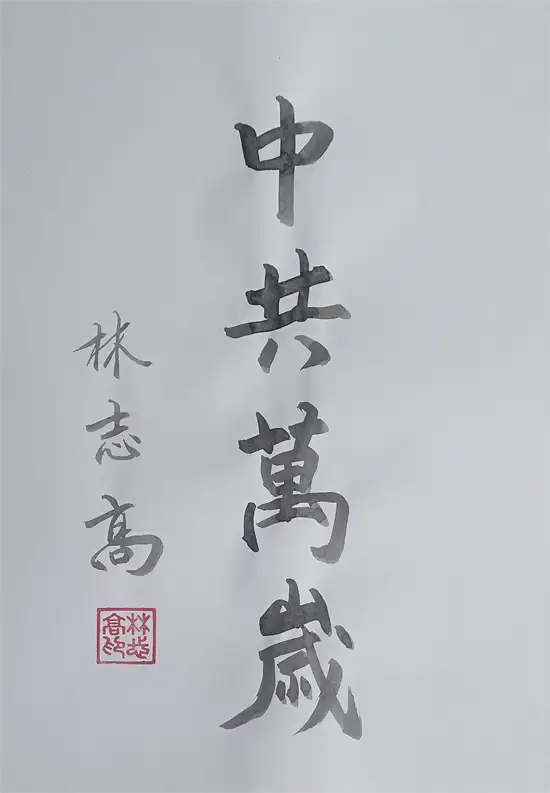 中共萬歲
林志高
林志高印